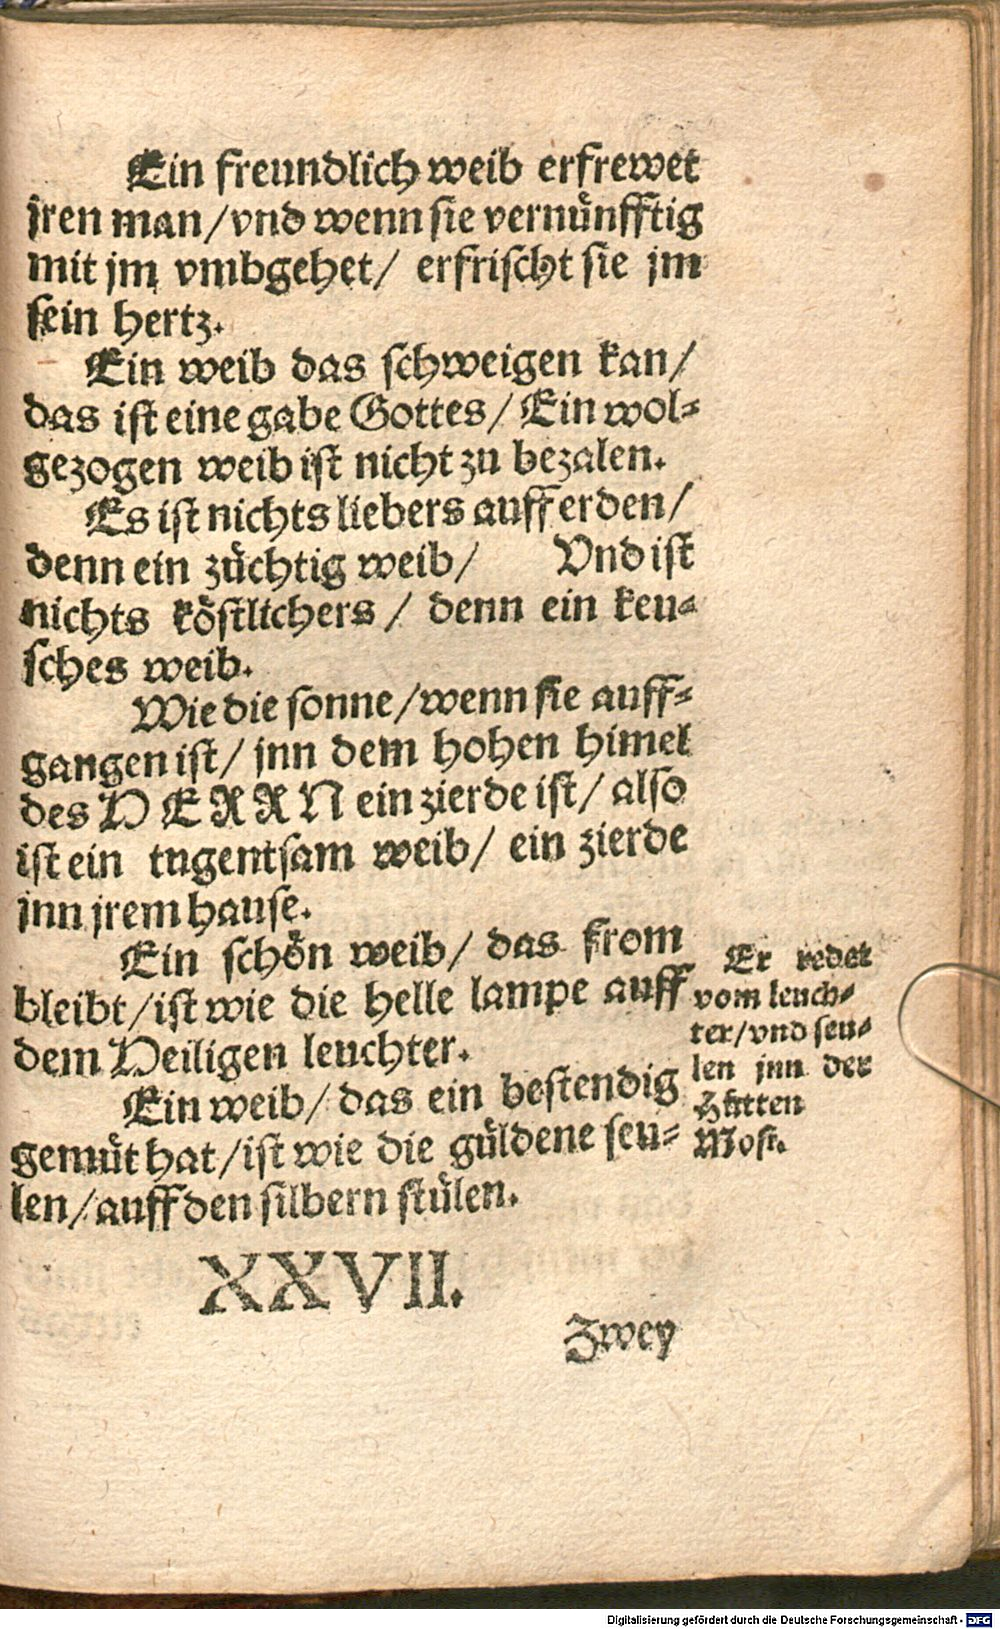 Ein freundlich weib erfrewet
jren man/vnd wenn sie vernünfftig
mit jm vmbgehet/ erfrischt sie jm
sein hertz.
Ein weib das schweigen kan/
das ist eine gabe Gottes/ Ein wol-
gezogen weib ist nicht zu bezalen.
Es ist nichts liebers auff erden/
denn ein züchtig weib/ Vnd ist
nichts köstlichers/ denn ein keu-
sches weib.
Wie die sonne/wenn sie auff-
gangen ist/ jnn dem hohen himel
des HERRN ein zierde ist/ also
ist ein tngentsam weib/ ein zierde
jnn jrem hause.
Ein schön weib/ das from
bleibt/ist wie die helle lampe auff
dem Heiligen leuchter.
Ein weib/ das ein bestendig
gemüt hat/ist wie die güldene seu-
len/auff den silbern stülen.
Er redet
vom leuch-
ter/vnd seu-
len jnn der
Hütten
Mosi.
XXVII.
Zwey
Digitalisierung gefördert durch die Deutsche Forschungsgemeinschaft - DFG